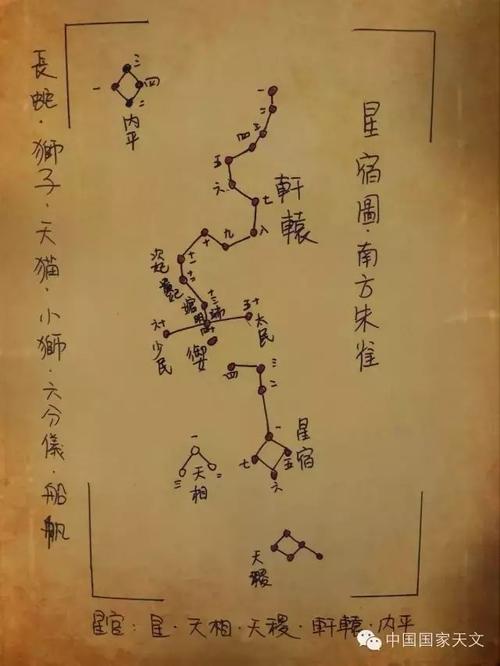 星宿圖·南方朱雀
長蛇·獅子·天貓·小獅·六分儀·船帆
三
一
四
二
内平
一
二
三
四
五
六
七
軒轅
八
九
十
十一
次妃
十二
十三
十六
少民
御女
十五
大民
四
三
二
一
星宿
七
五
六
一
二
三
天相
天稷
星官：星·天相·天稷·軒轅·内平
中国国家天文